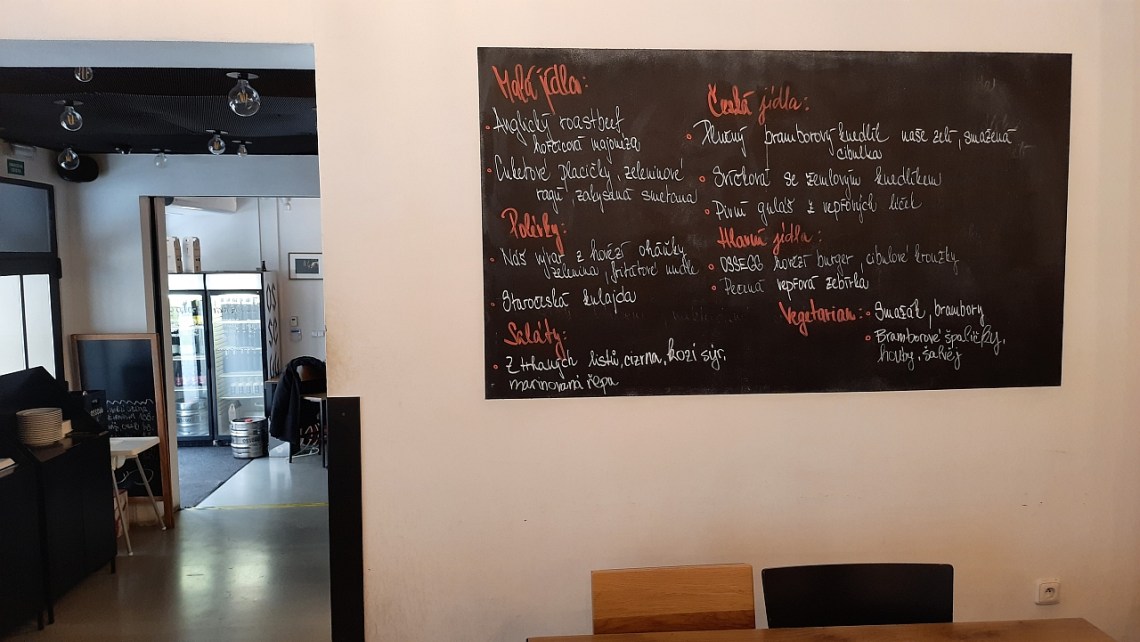 Malá jídla:
Anglický roastbeef,
hořčicová majonéza
Cuketové placičky, zeleninové
ragú, zakysaná smetana
Polévky:
Náš vývar z hovězí oháňky
zelenina, fritátové nudle
Staročeská kulajda
Saláty:
Z trhaných listů, cizrna, kozí sýr,
marinovaná řepa
Česká jídla:
Plněný bramborový knedlík naše zelí, smažená
cibulka
Svíčková se žemlovým knedlíkem
Pivní guláš z vepřových líček
Hlavní jídla:
OSSEGG hovězí burger cibulové kroužky
Pečená vepřová žebírka
Vegetarian: Smažák, brambory
Bramborové špalíčky,
houby, šalvěj
OS
SE